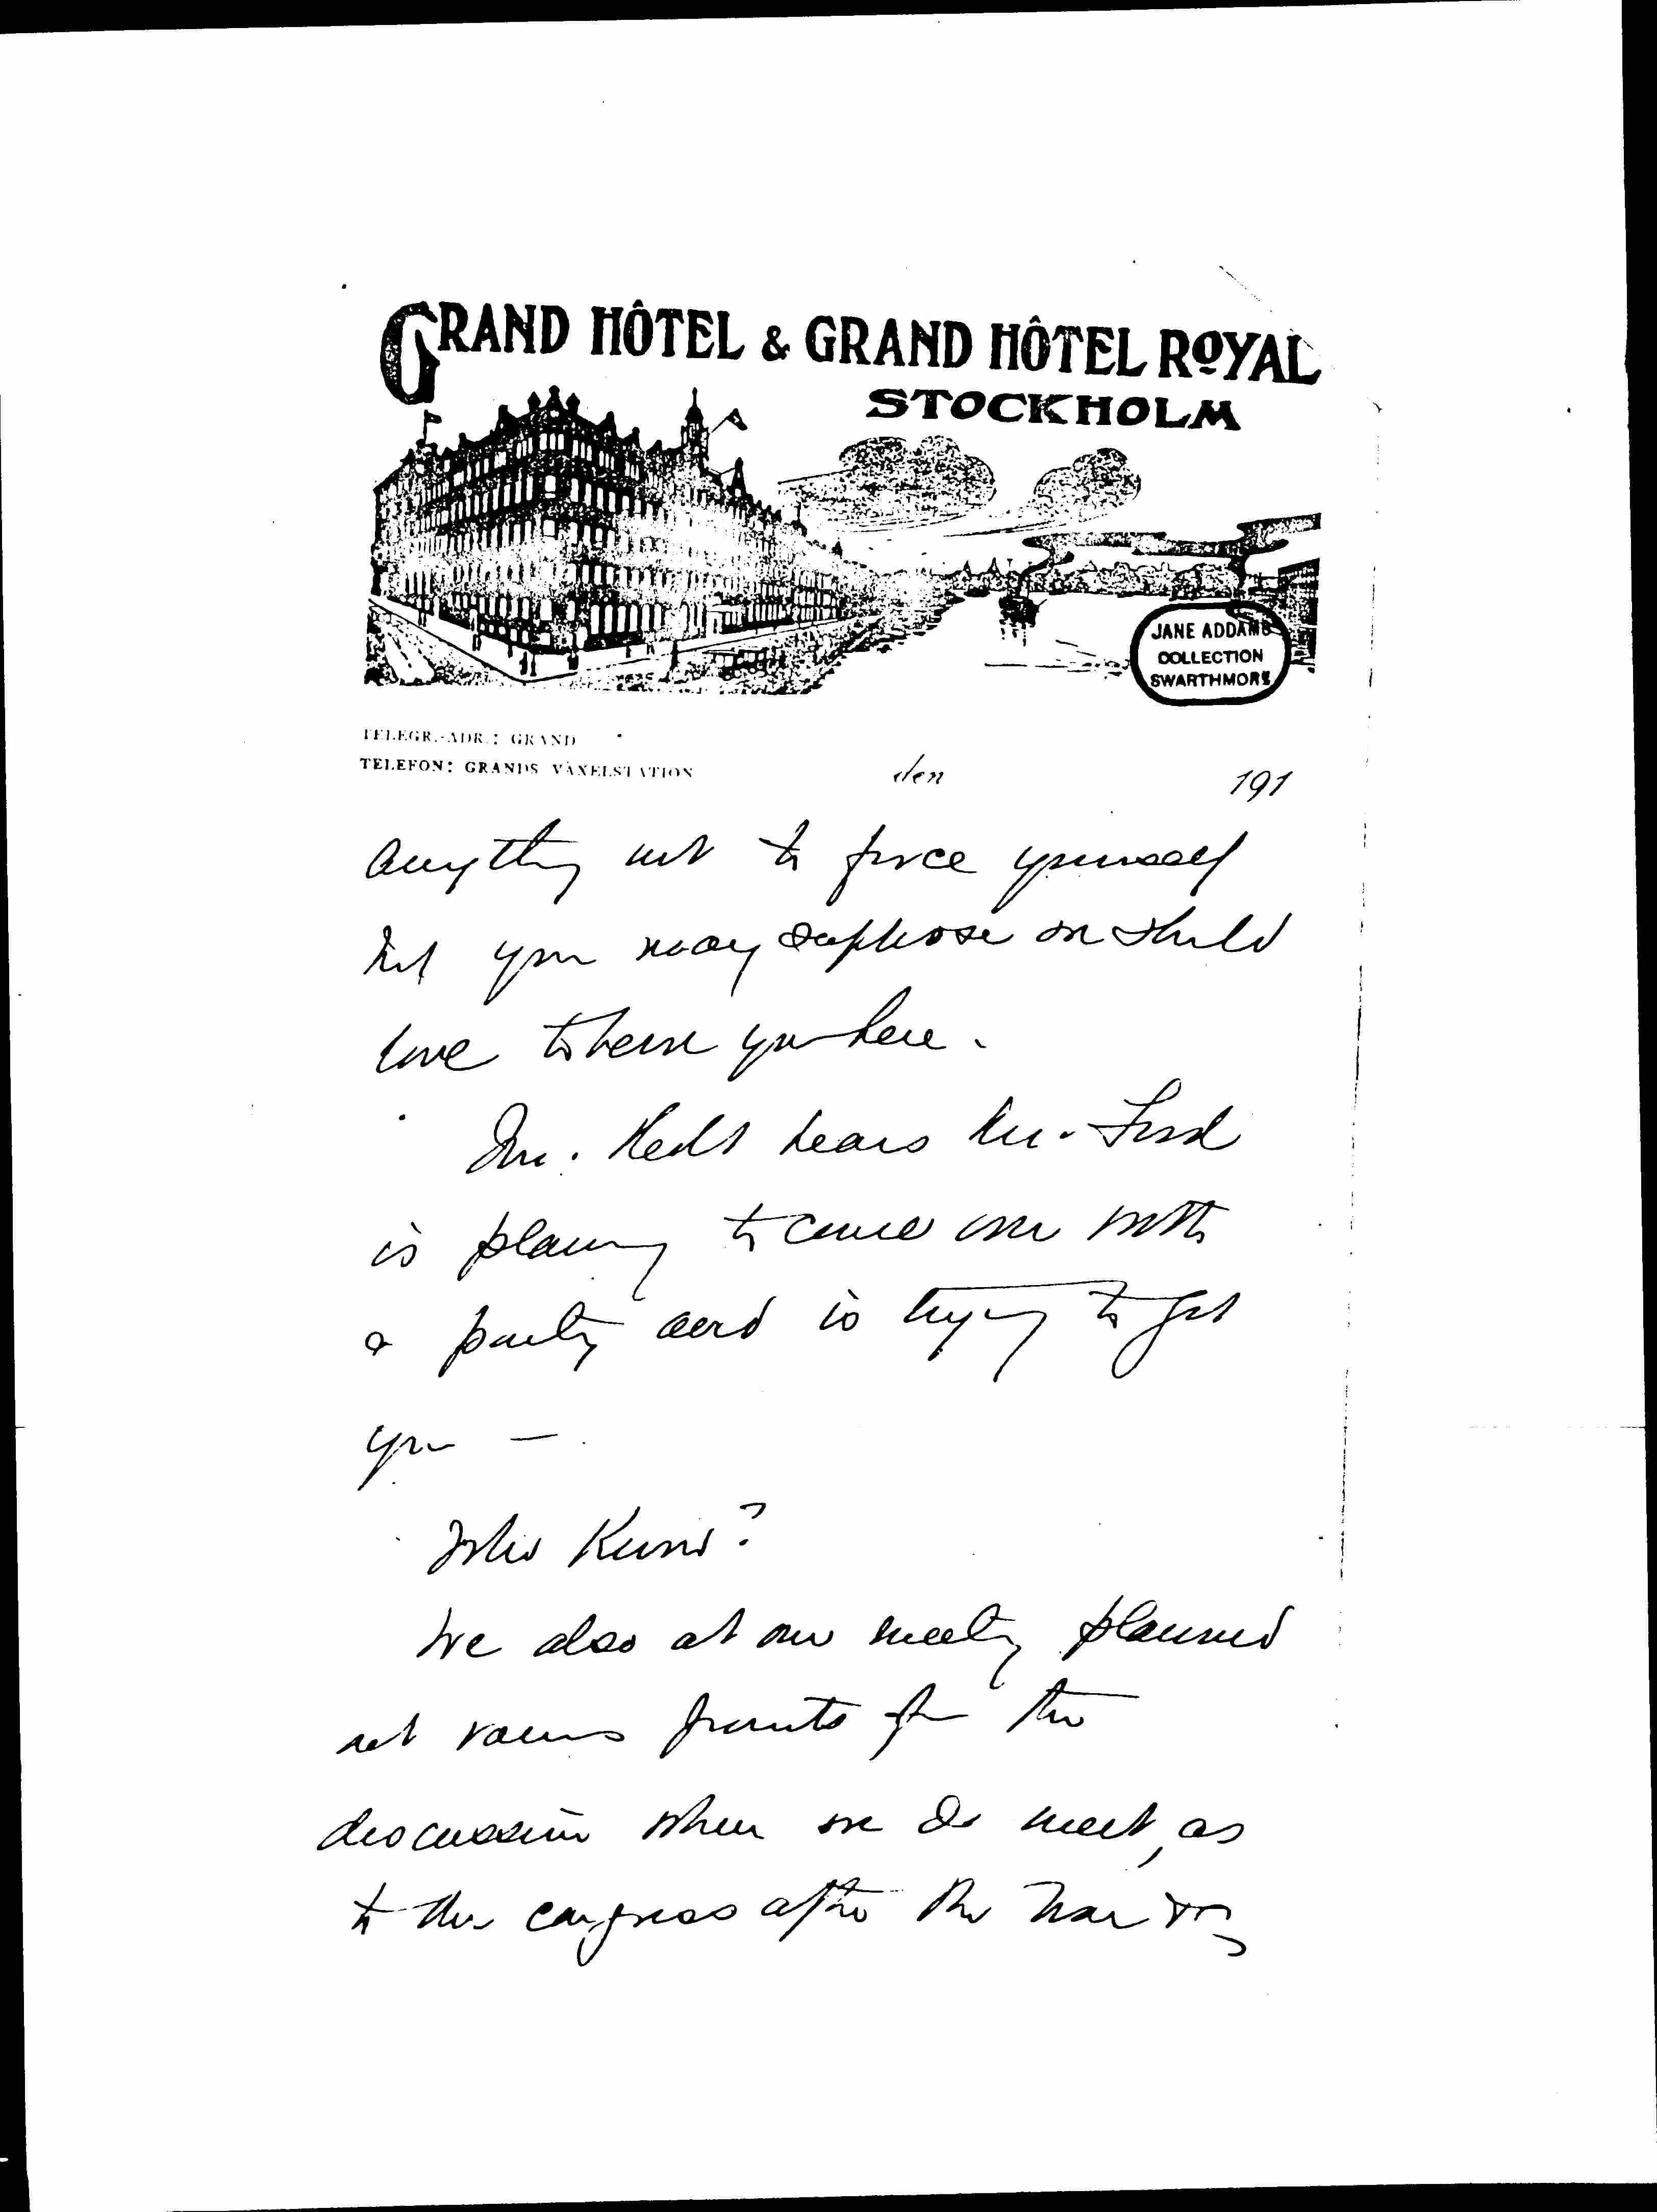 GRAND HÔTEL & GRAND HÔTEL ROYAL
STOCKHOLM
JANE ADDAMS
COLLECTION
SWARTHMORE
TELEGR.-ADR.: GRAND
TELEFON: GRANDS VÄXELSTATION
den 191
anything not to force yourself
but you may suppose we should
love to have you here.
Mr. Hedt hears Mr. Ford
is planning to come over with
a party and is trying to get
you —
Who knows?
We also at our meeting planned
out various points for the
discussion when we do meet, as
to the congress after the War &